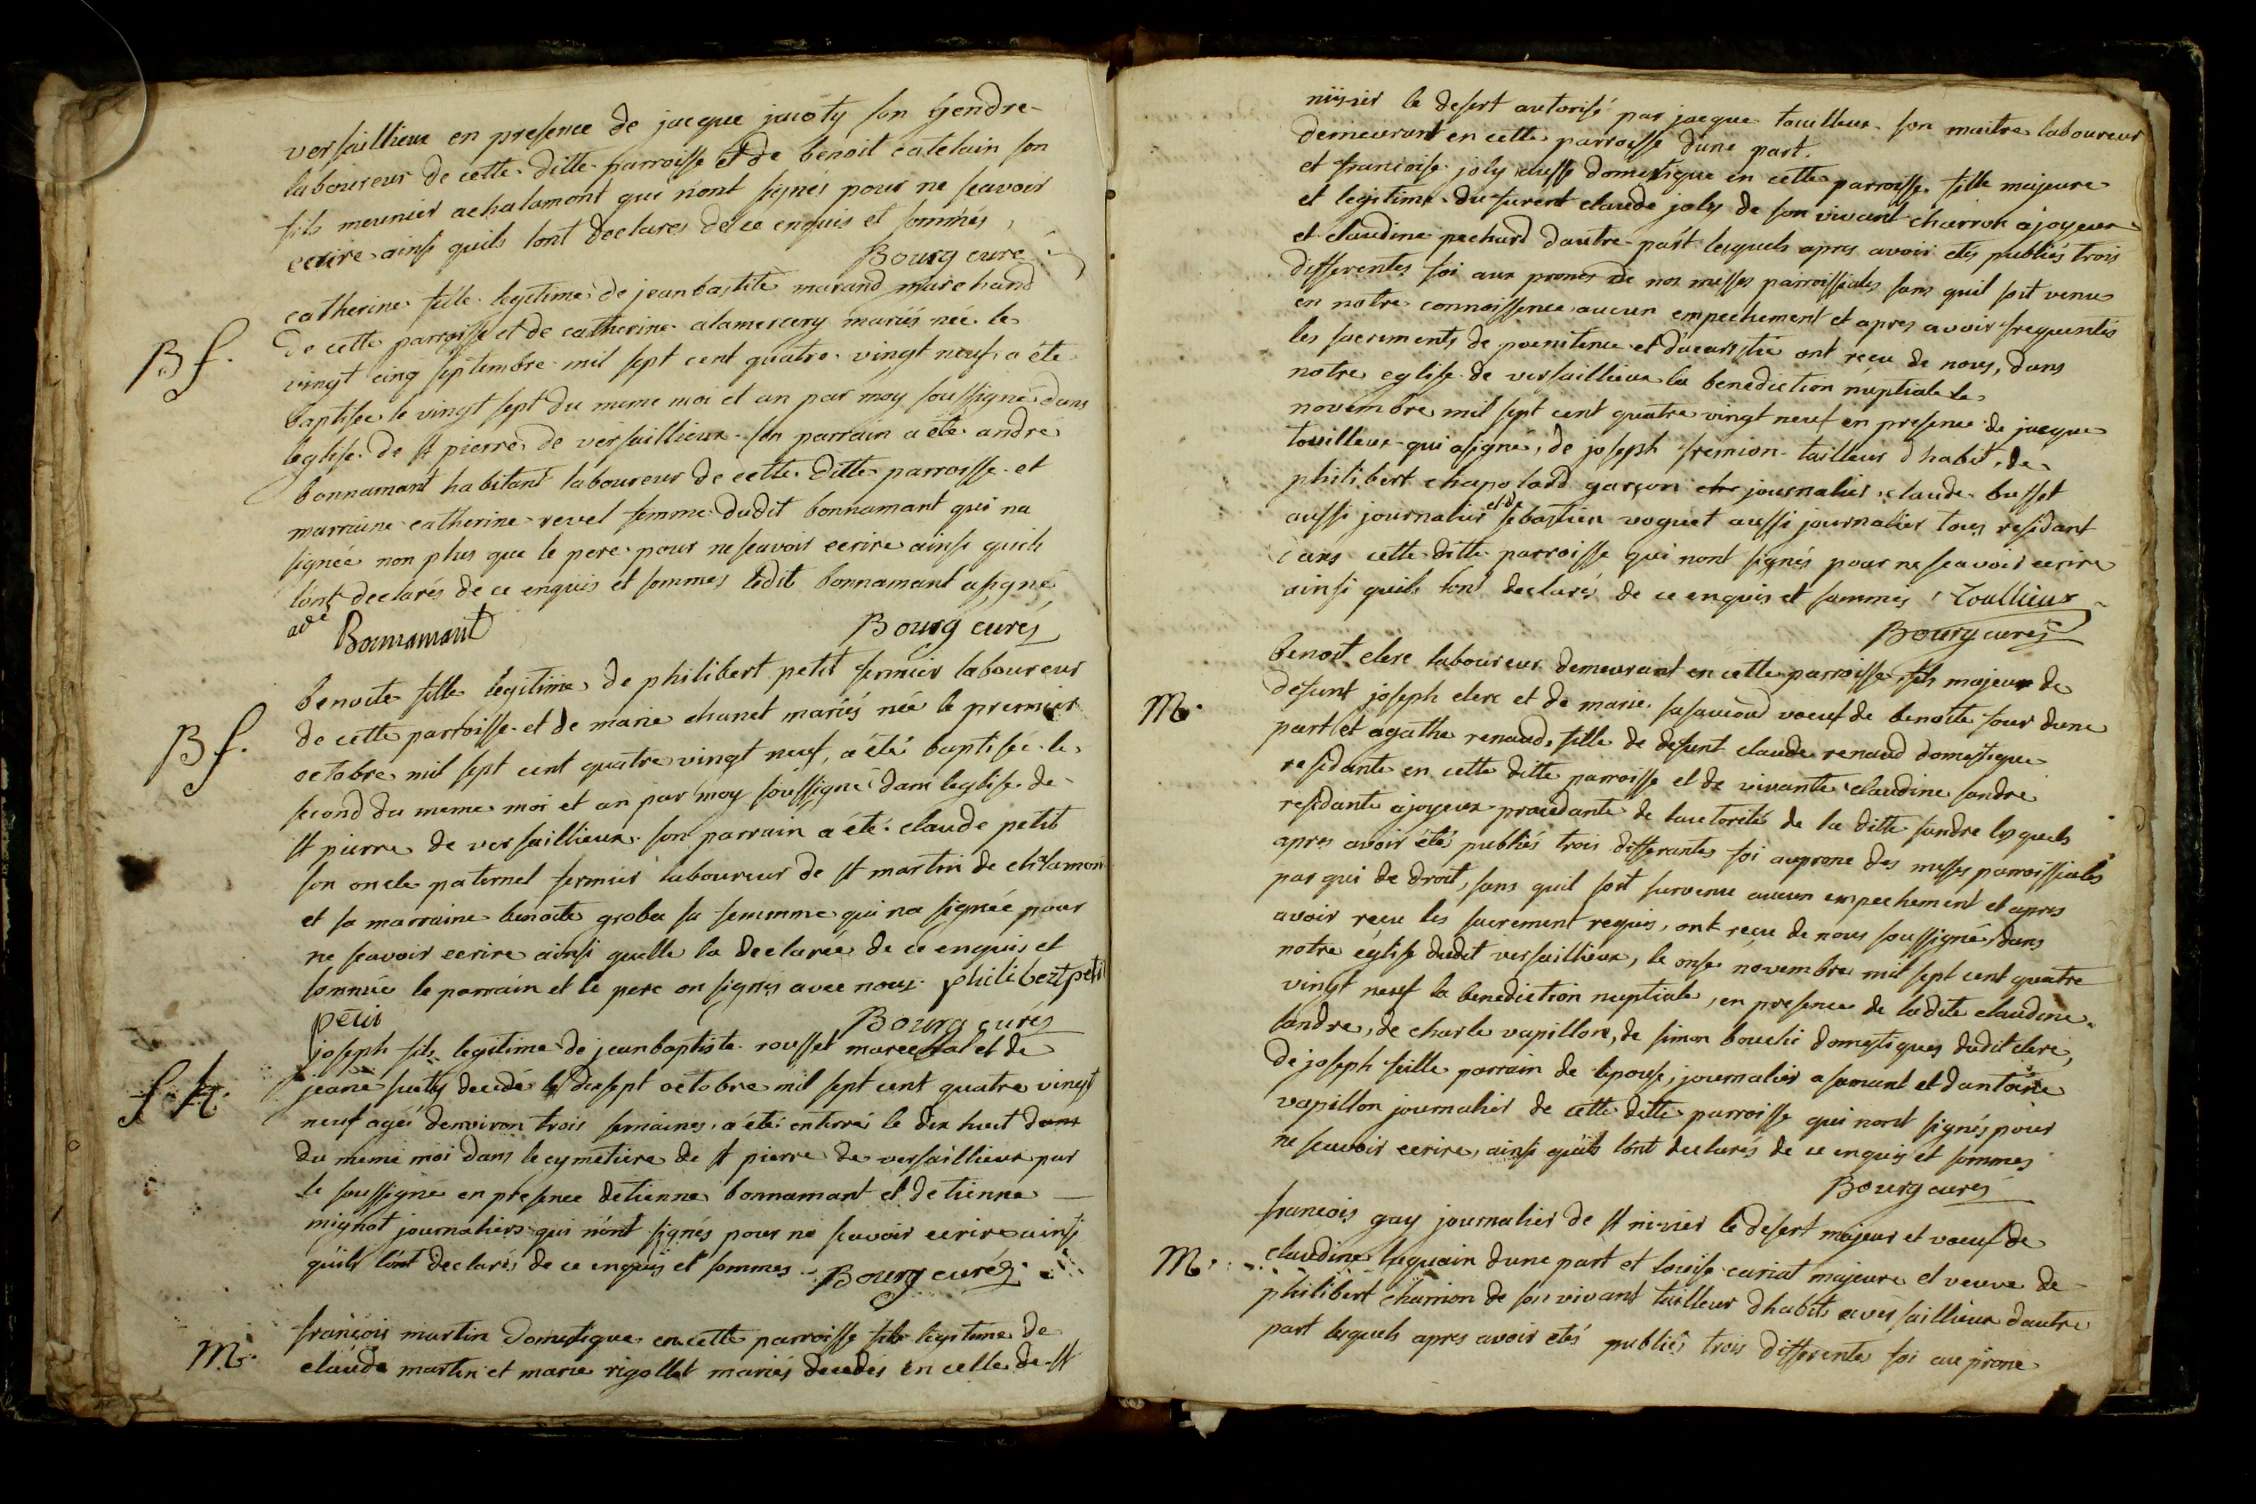 versaillieux en presence de jacque jacoty son gendre
laboureur de cette ditte parroisse et de benoit catelain son
fils meunier achalamont qui n'ont signés pour ne scavoir
ecrire ainsi quils lont declares de ce enquis et sommés
Bourg curé
catherine fille legitime de jean bastite marand marchand
B f.
de cette parroisse et de catherine alamercery mariés née le
vingt cinq septembre mil sept cent quatre vingt neuf a été
baptisée le vingt sept du meme moi et an par moy soussigné dans
leglise de st pierre de versaillieux son parrain a été andré
bonnamant habitant laboureur de cette ditte parroisse et
marraine catherine revel femme dudit bonnamant qui na
signée non plus que le pere pour ne scavoir ecrire ainsi quils
lont declarés de ce enquis et sommes ledit bonnamant a signé
adé Bonnamant Bourg curés
benoite fille legitime de philibert petit fermier laboureur
B f.
de cette parroisse et de marie chanet mariés née le premier
octobre mil sept cent quatre vingt neuf, a été baptisée le
second du meme moi et an par moy soussigné dans leglise de
st pierre de versaillieux son parrain a été claude petit
son oncle paternel fermier laboureur de st martin de chalamon
et sa marraine benoite groba sa femmme qui na signée pour
ne scavoir ecrire ainsi quelle la declarée de ce enquis et
sonnée le parrain et le pere on signés avec nous philibert petit
petit Bourg curés
joseph fils legitime de jean baptiste rousset marechal et de
f h.
jeane decedé le dixsept octobre mil sept cent quatre vingt
neuf agés denviron trois semaines a été enterré le dix huit dans
du meme moi dans le cymetiere de st pierre de versaillieux par
le soussigné en presence detienne bonnamant et detienne
mignot journaliers qui n'ont signés pour ne scavoir ecrire ainsi
quils lont declarés de ce enquis et sommes Bourg curés
françois martin domestique en cette parroisse fils legitime de
M.
claude martin et marie rigollet mariés decedes en celle de st
nizier le desert autorisé par jacque touilleux son maitre laboureur
demeurant en cette parroisse dune part.
et francoise joly aussi domestique en cette parroisse fille majeure
et legitime du furent claude joly de son vivant charron ajoyeux
et claudine pechard dautre part lesquels apres avoir etés publiés trois
differentes foi aux prones de nos messes parroissiales sans quil soit venu
en notre connoissence aucun empechement et apres avoir frequentés
les sacrements de poenitence et deucaristie ont recu de nous, dans
notre eglise de versaillieux la benediction nuptiale le
novembre mil sept cent quatre vingt neuf en presence de jacque
touilleux qui a signé, de joseph fremion tailleur dhabit, de
philibert chapolard garçon che journalier, claude busset
aussi journalier et de sebastien voguet aussi journalier tous residant
dans cette ditte parroisse qui nont signés pour ne scavoir ecrire
ainsi quils lont declarés de ce enquis et sommes Toullieux
Bourg curés
benoit clerc laboureur demeurant en cette parroisse fils majeur de
M.
defunt joseph clerc et de marie voeuf de benoite four dune
part et agathe renaud fille de defunt claude renaud domestique
residante en cette ditte parroisse et de vivante claudine sandre
residante ajoyeux procedante de lautorités de la ditte sandre lesquels
apres avoir été publiés trois differantes foi auprone des messes parroissiales
par qui de droit, sans quil soit survenu aucun empechement et apres
avoir recu les sacrement requis, ont recu de nous soussigné dans
notre église dudit versaillieux, le onse novembre mil sept cent quatre
vingt neuf la benediction nuptiale, en presence de ladite claudine
sandre, de charle vapillon, de simon bouchi domestiques dudit clerc,
de joseph feille parrain de lepouse, journalier a samant et dantoine
vapillon journalier de cette ditte parroisse qui nont signés pour
ne scavoir ecrire, ainsi quils lont declarés de ce enquis et sommes
Bourg curés
francois gay journalier de st nizier le desert majeur et voeuf de
M.
claudine luquain dune part et louise curiat majeure et veuve de
philibert charrion de son vivant tailleur dhabits a versaillieux dautre
part lesquels apres avoir etés publiés trois differentes foi au prone